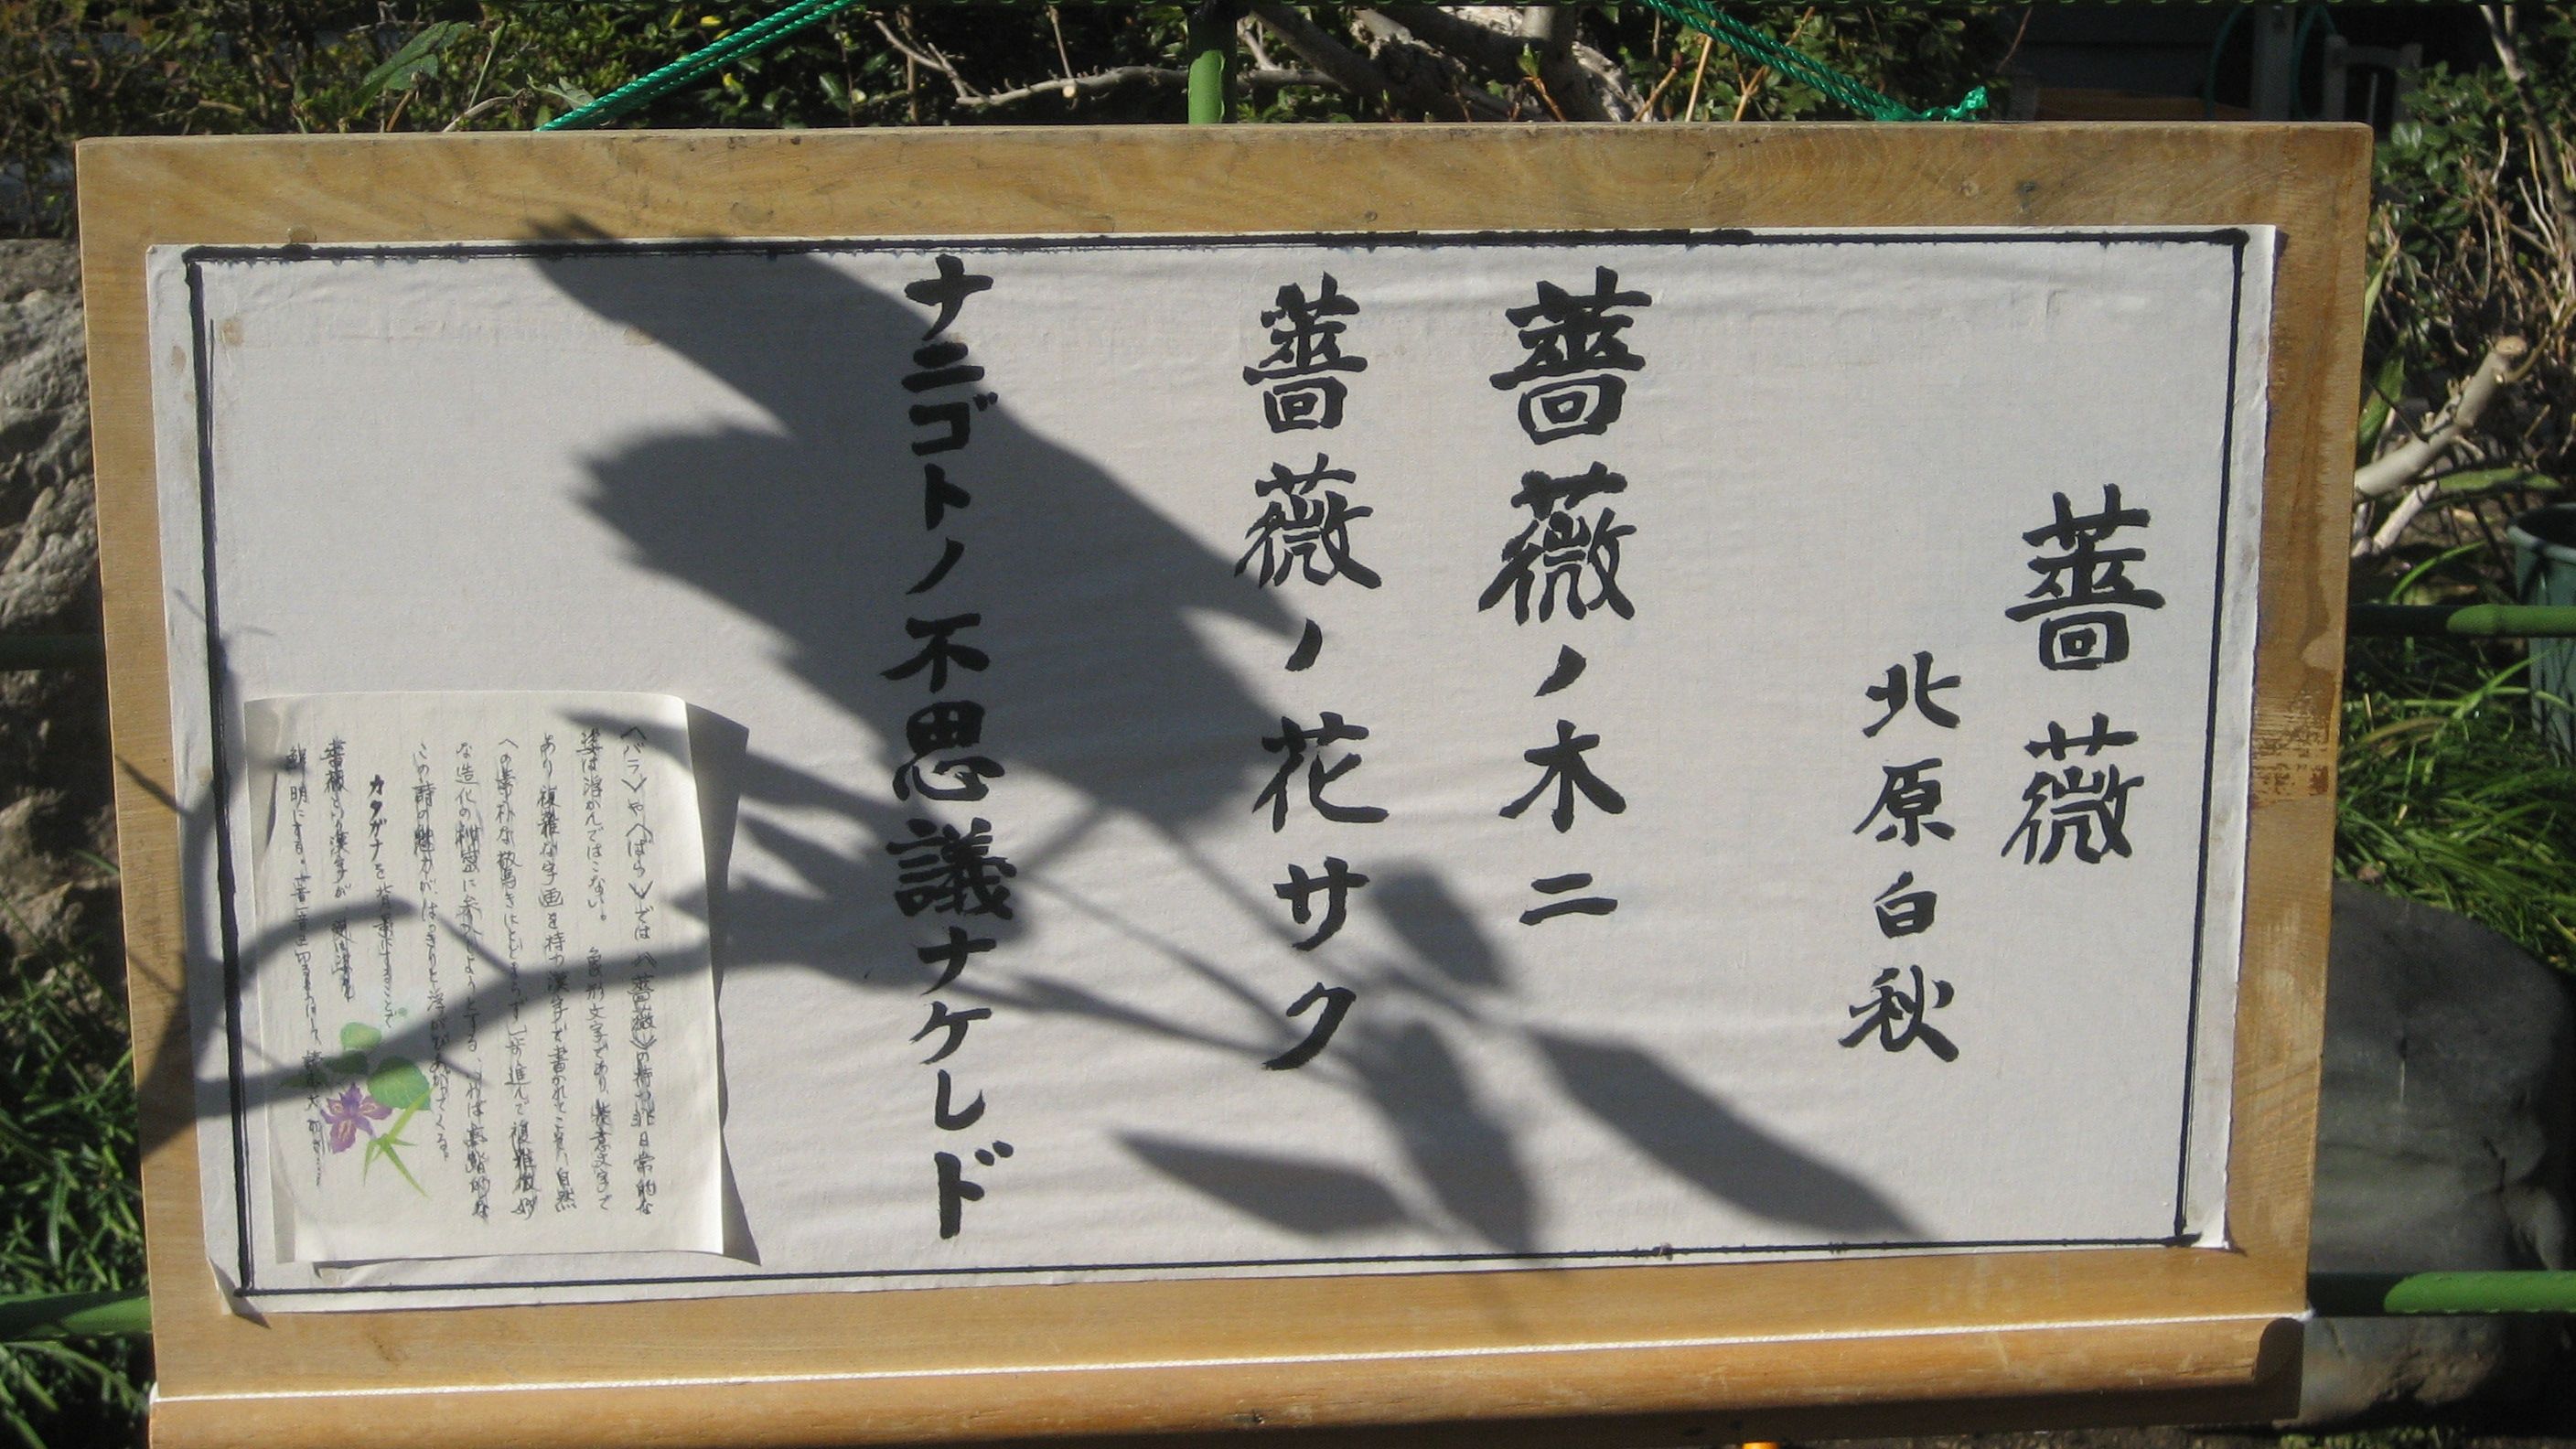 薔薇
北原白秋
薔薇ノ木ニ
薔薇ノ花サク
ナニゴトノ不思議ナケレド
〈バラ〉や〈ばら〉では 〈薔薇〉の持つ非日常的な
姿は浮かんではこない。 象形文字であり、表意文字で
あり複雑な字画を持つ漢字で書かれてこそ、自然
への素朴な驚きにとどまらず、一歩進んで複雑微妙
な造化の秘密に参入しようとする、いわば高踏的な
この詩の魅力が、はっきりと浮かびあがってくる。
カタカナを背景にすることで
薔薇という漢字が
鮮明にする。